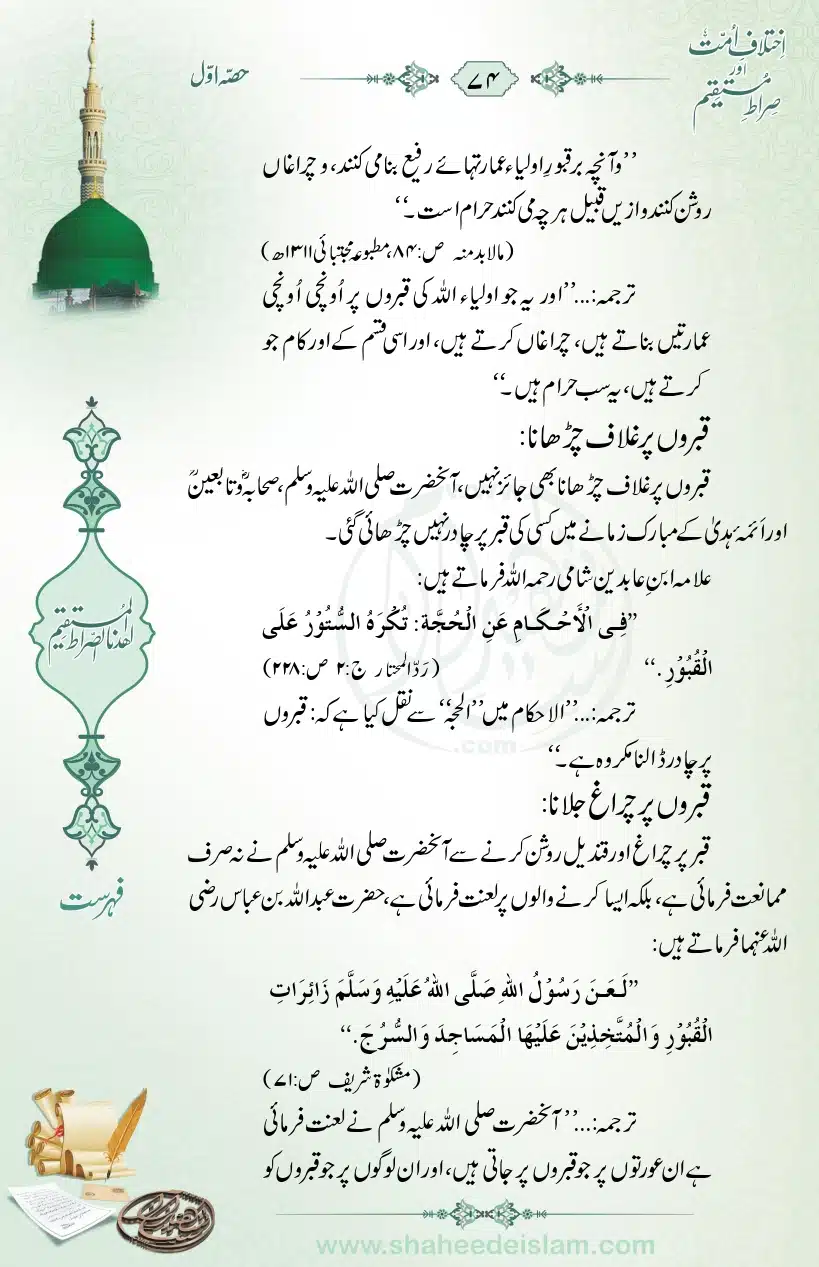 اِختلافِ اُمّت
اور
صراطِ مستقیم
۷۴
حصہ اوّل
’’وآنچہ بر قبورِ اولیاء عمارتہائے رفیع بنا می کنند، و چراغاں
روشن کنند وازیں قبیل ہر چہ می کنند حرام است۔‘‘
(مالابدمنہ ص:۸۴، مطبوعہ مجتبائی ۱۳۱۱ھ)
ترجمہ:...’’اور یہ جو اولیاء اللہ کی قبروں پر اُونچی اُونچی
عمارتیں بناتے ہیں، چراغاں کرتے ہیں، اور اسی قسم کے اور کام جو
کرتے ہیں، یہ سب حرام ہیں۔‘‘
قبروں پر غلاف چڑھانا:
قبروں پر غلاف چڑھانا بھی جائز نہیں، آنحضرت صلی اللہ علیہ وسلم، صحابہؓ وتابعینؒ
اور اَئمہٴ ہدیٰ کے مبارک زمانے میں کسی کی قبر پر چادر نہیں چڑھائی گئی۔
علامہ ابنِ عابدین شامی رحمہ اللہ فرماتے ہیں:
’’فِی الْأَحْکَامِ عَنِ الْحُجَّة: تُکْرَهُ السُّتُوْرُ عَلَی
الْقُبُوْرِ.‘‘ (رَدّ المحتار ج:۲ ص:۲۲۸)
ترجمہ:...’’الاحکام میں ’’الحجہ‘‘ سے نقل کیا ہے کہ: قبروں
پر چادر ڈالنا مکروہ ہے۔‘‘
قبروں پر چراغ جلانا:
قبر پر چراغ اور قندیل روشن کرنے سے آنحضرت صلی اللہ علیہ وسلم نے نہ صرف
ممانعت فرمائی ہے، بلکہ ایسا کرنے والوں پر لعنت فرمائی ہے، حضرت عبداللہ بن عباس رضی
اللہ عنہما فرماتے ہیں:
’’لَعَنَ رَسُوْلُ اللهِ صَلَّی اللهُ عَلَیْهِ وَسَلَّمَ زَائِرَاتِ
الْقُبُوْرِ وَالْمُتَّخِذِیْنَ عَلَیْهَا الْمَسَاجِدَ وَالسُّرُجَ.‘‘
(مشکوٰۃ شریف ص:۷۱)
ترجمہ:...’’آنحضرت صلی اللہ علیہ وسلم نے لعنت فرمائی
ہے ان عورتوں پر جو قبروں پر جاتی ہیں، اور ان لوگوں پر جو قبروں کو
اهدنا الصراط المستقیم
فہرست
.com
www.shaheedeislam.com